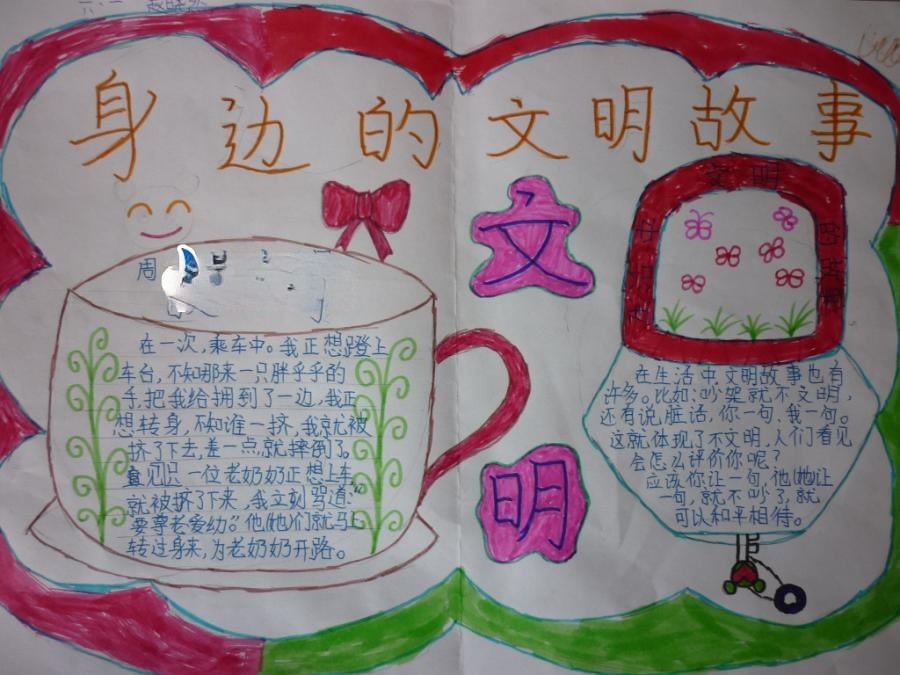 六·一
身边的文明故事
周
在一次,乘车中。我正想蹬上
车台,不知那来一只胖乎乎的
手,把我给拥到了一边,我正
想转身,不知谁一挤,我就被
挤了下去,差一点,就摔倒了。
只见一位老奶奶正想上车,
就被挤了下来,我立刻骂道:“
要尊老爱幼。”他(她)们就马上
转过身来,为老奶奶开路。
文
明
文明
在生活中,文明故事也有
许多。比如:吵架就不文明,
还有说脏话,你一句,我一句。
这就体现了不文明,人们看见
会怎么评价你呢?
应该你让一句,他(她)让
一句,就不吵了,就
可以和平相待。